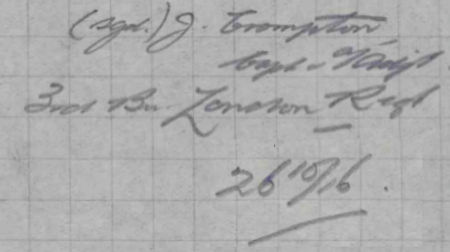 (sgd.) J. Crompton
Capt & Adjt.
3rd Bn. London Regt
26/10/16.